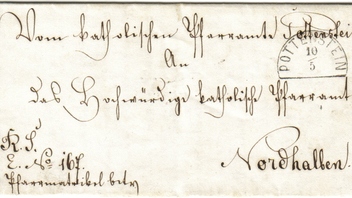 Vom katholischen Pfarramte Pottenstein
POTTENSTEIN
10
5
An
das Hochwürdige katholische Pfarramt
R. S.
E. No 167.
Pfarrmatrikel betr
Nordhalben.